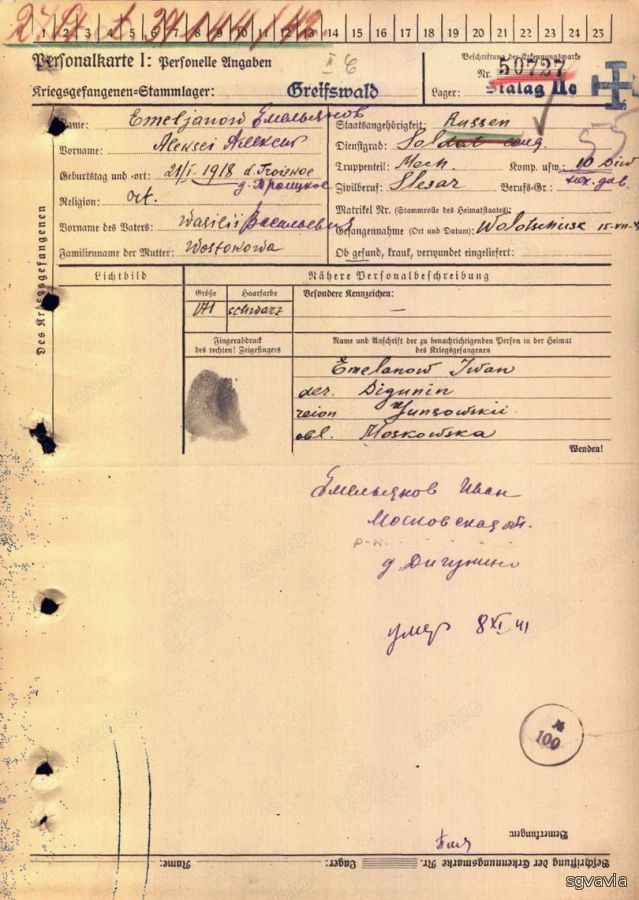 1 2 3 4 5 6 7 8 9 10 11 12 13 14 15 16 17 18 19 20 21 22 23
Personalkarte I: Personelle Angaben
Kriegsgefangenen-Stammlager: Greifswald
Beschriftung der Erkennungsmarke
Nr. 50727
Lager: Stalag IIc
Name: Emeljanow Емельянов
Vorname: Aleksei Алексей
Geburtstag und -ort: 21/I. 1918 d. Troizkoe
д. Троицкое
Religion: ort.
Vorname des Vaters: Wasilii Васильевич
Familienname der Mutter: Wostokowa
Staatsangehörigkeit: Russen
Dienstgrad: Soldat солд
Truppenteil: Mech. Komp. usw.: 10 Diw
Zivilberuf: Slesar Berufs-Gr.:
Matrikel Nr. (Stammrolle des Heimatstaates):
Gefangennahme (Ort und Datum): Wolotschisk 15-VII-41
Ob gesund, krank, verwundet eingeliefert:
Des Kriegsgefangenen
Lichtbild
Nähere Personalbeschreibung
Größe Haarfarbe Besondere Kennzeichen:
171 schwarz —
Fingerabdruck
des rechten! Zeigefingers
Name und Anschrift der zu benachrichtigenden Person in der Heimat
des Kriegsgefangenen
Emelanow Iwan
der. Digunin
reion
obl. Moskowska
Wenden!
Емельянов Иван
Московская об.
р-н
д. Дигунино
умер 8 XI 41
№
100
Bemerkungen:
Beschriftung der Erkennungsmarke Nr. Lager: Name:
sgvavia